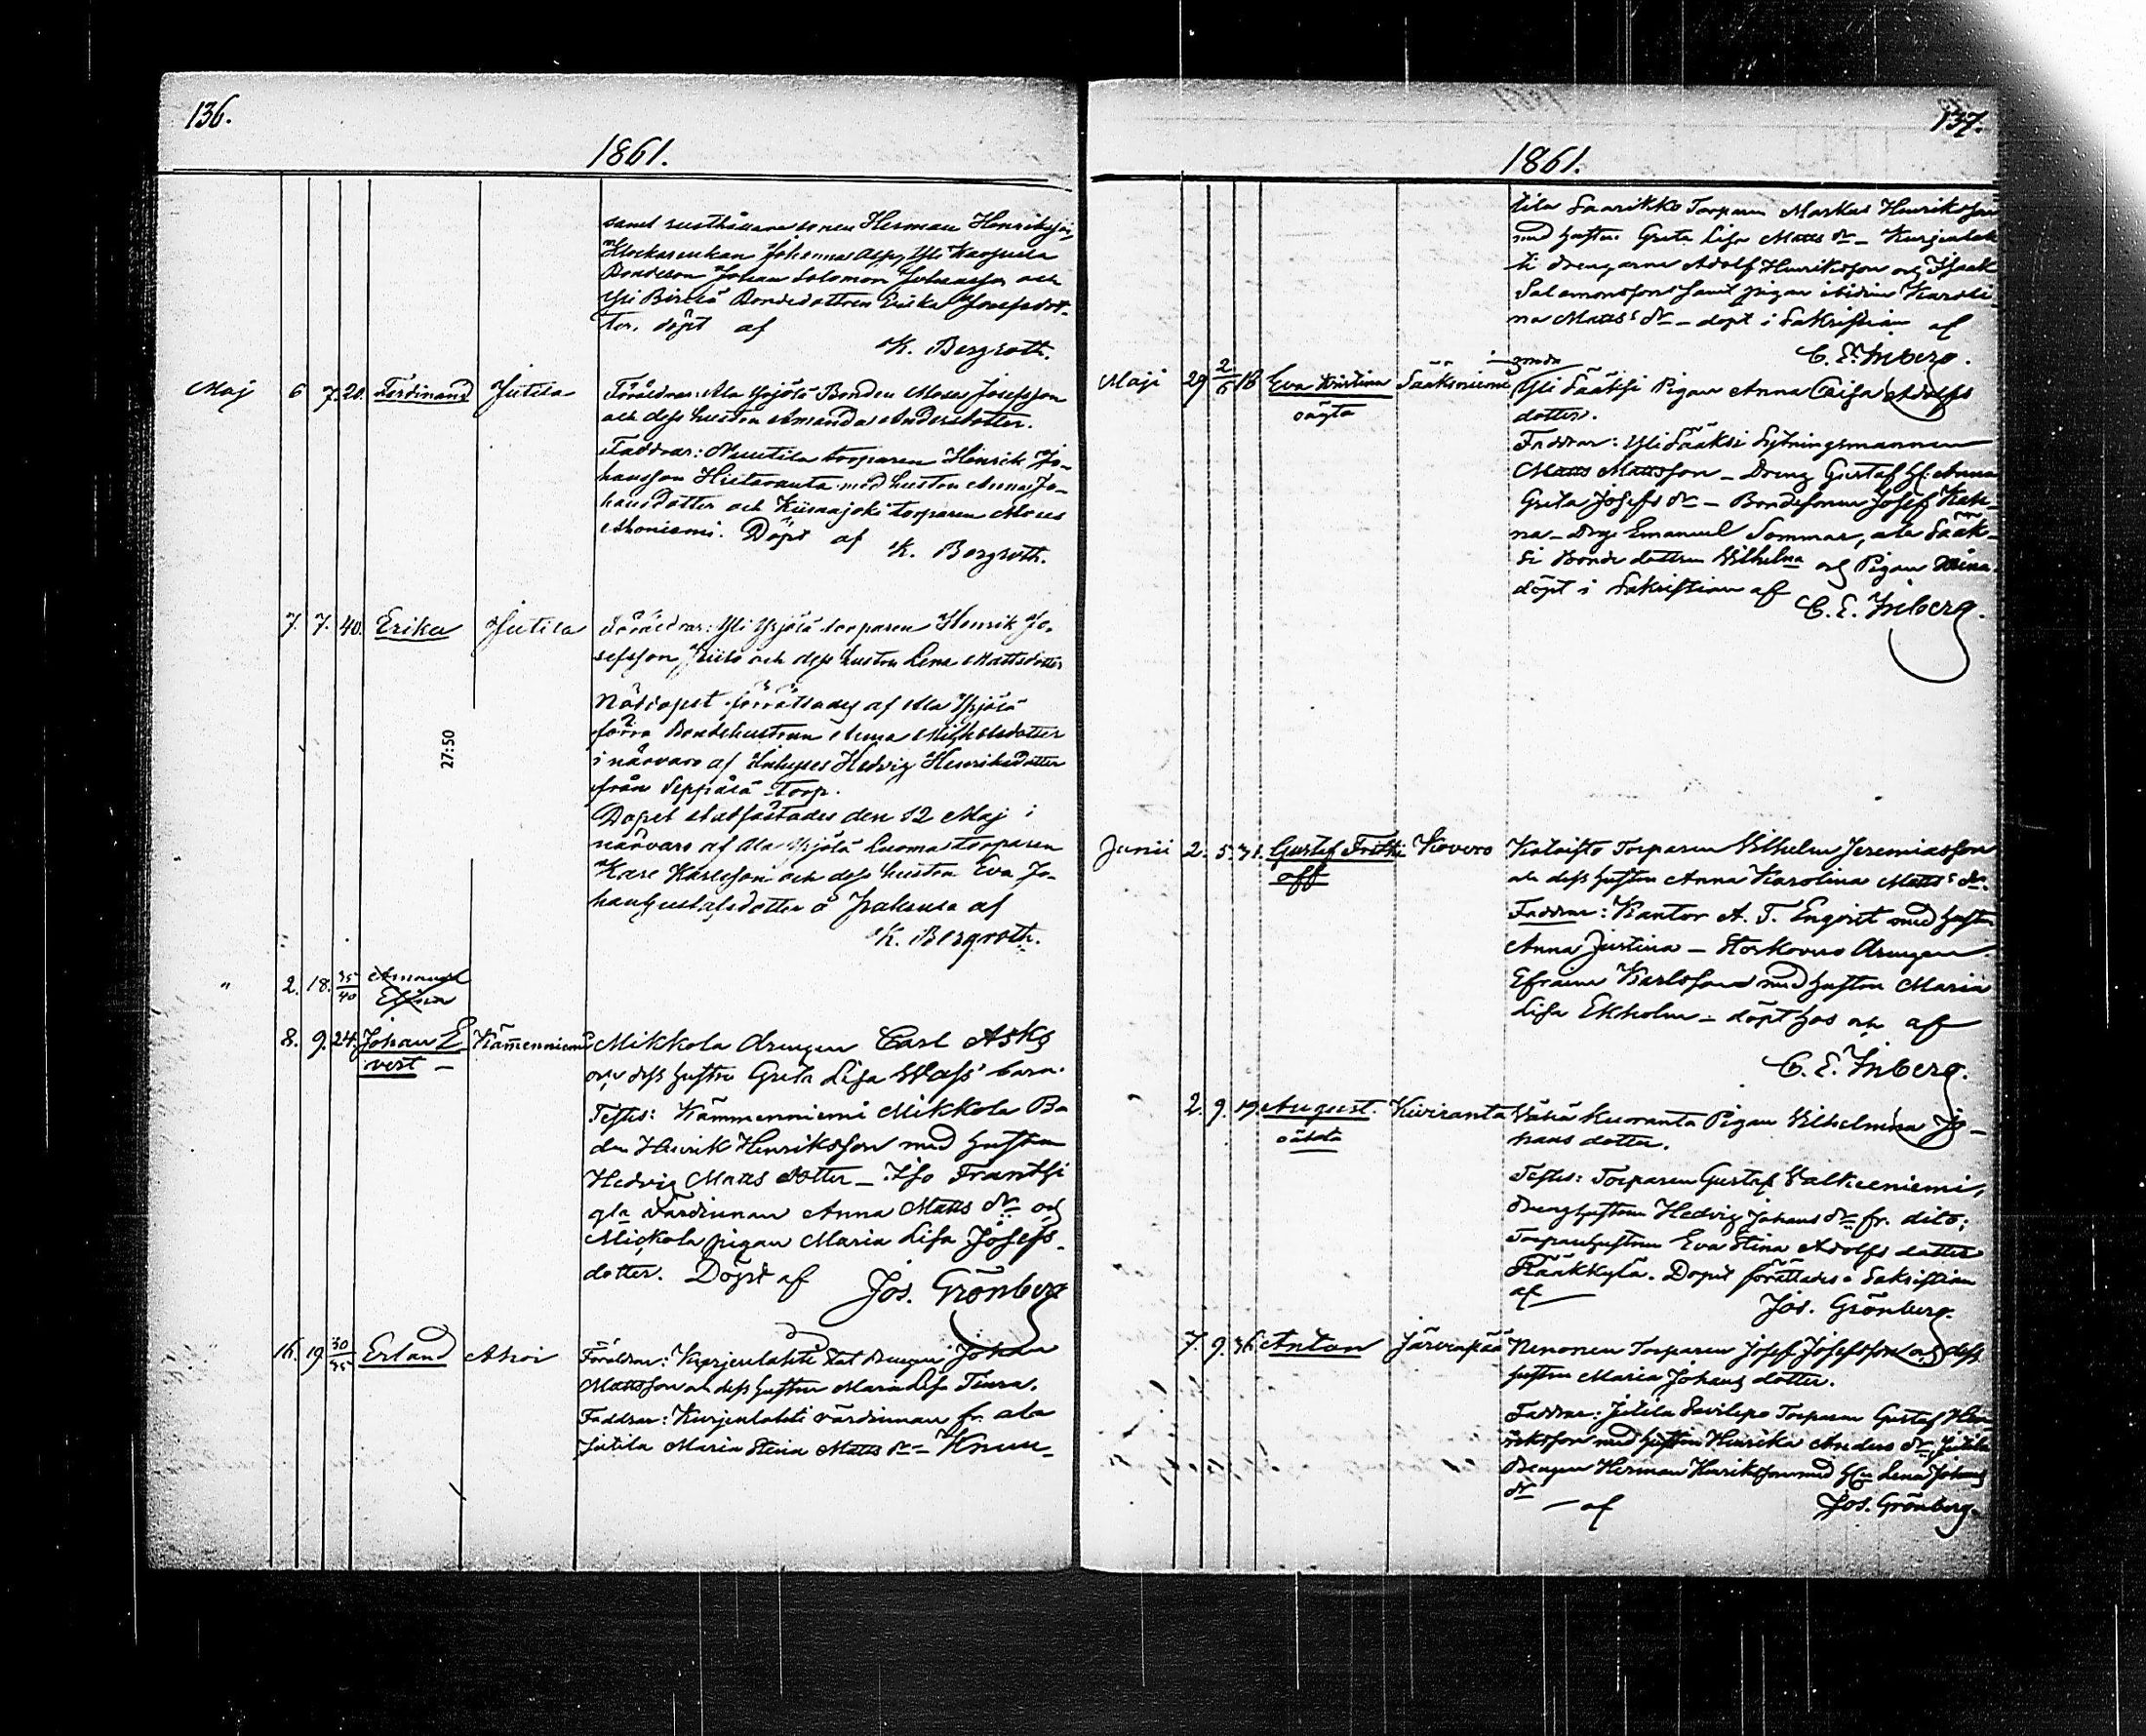 136.
1861.
samt rusthållaresonen Herman Henriksson,
Klockarenkan Johanna Asp, Yli
Bondeson Johan Salomon Johansson och
Yli Bondedottren Erika Josefsdot-
ter, döpt af
K. Bergroth.
Maj 6 7. 20. Ferdinand Jutila Föräldrar: Ala Ypjölä Bonden Moses Josefsson
och dess hustru Amanda Andersdotter.
Faddrar: Nuutila torparen Henrik Jo-
hansson Hietaranta med hustru Anna Jo-
hansdotter och Kiimajoki torparen Moses
Ahoniemi. Döpt af
K. Bergroth.
7. 7. 40. Erika Jutila Föräldrar: Yli Ypjölä torparen Henrik Jo-
sefsson och dess hustru Lena Mattsdotter
Nöddopet förrättades af Ala Ypjölä
förra Bondehustrun Anna Michelsdotter
i närvaro af Inhyses Hedvig Henriksdotter
från Seppälä Torp.
Dopet stadfästades den 12 Maj i
närvaro af Ala Ypjölä Luoma torparen
Karl Karlsson och dess hustru Eva Jo-
hanGustafsdotter å af
K. Bergroth.
27:50
" 2. 18. 35/40 Amanda
8. 9. 24. Johan E- Kämmenniemi Mikkola drengen Carl Ask
vert och dess hustru Greta Lisa Wass barn.
Testes: Kämmenniemi Mikkola Bo
den Henrik Henriksson med hustru
Hedvig Matts dotter — Iso Frantsi
gla värdinnan Anna Matts dr och
Mickola pigan Maria Lisa Josefs-
dotter. Döpt af Jos. Grönberg
16. 19 30/35 Erland Ahoi Föräldrar: Kurjenlahti Stat drengen Johan
Mattsson och dess hustru Maria Lisa
Faddrar: Kurjenlahti värdinnan fr. ala
Jutila Maria Stina Matts dr — Knuu-
137.
1861.
tila Saarikko Torparen Markus Henriksson
med hustru Greta Lisa Matts dr — Kurjenlah
ti drengarne Adolf Henriksson och Isaak
Salomonsson samt pigan ibidem Karoli-
na Matts dr — döpt i Sakristian af
C. E. Inberg.
Maji 29 2/6 18 Eva Kristina Sääksniemi Yli Sääksi Pigan Anna Caisa Adolfs
oägta dotter.
Faddrar: Yli Sääksi Sytningsmannen
Matts Mattsson — Dreng Gustaf h. Anna
Greta Josefs dr — Bondesonen Josef
na — Drge Emanuel Sommar, ala Sääk-
si Bonde dottren Vilhelma och Pigan
döpt i Sakristian af
C. E. Inberg.
Junii 2. 5. 31. Gustaf Frithi Kovero Kataisto Torparen Vilhelm Jeremiasson
off och dess hustru Anna Karolina Matts dr.
Faddrar: Kantor A. F. Enqvist med hustru
Anna Justina — Storkovero drengen
Efraim Karlsson med hustru Maria
Lisa Ekholm — döpt hos af
C. E. Inberg.
2. 9. 19. August. Kiviranta Vähä Kuoranta Pigan Vilhelmina Jo-
oäkta hans dotter.
Testes: Torparen Gustaf Valkeeniemi,
Drenghustrun Hedvig Johans dr fr. dito;
Torparehustrun Eva Stina Adolfs dotter
Rääkkylä. Dopet förrättades i Sakristian
af Jos. Grönberg.
7. 9. 36. Anton Järvenpää Nenonen Torparen Josef Josefsson och dess
hustru Maria Johans dotter.
Faddrar: Jutila Savilepo Torparen Gustaf Hen
riksson med hustru Henrika Anders dr, Jutila
Drengen Herman Henriksson med Lena Johans
dr — af Jos. Grönberg.